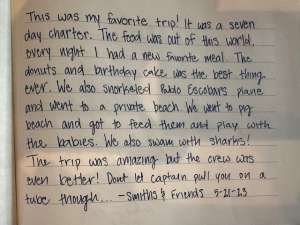 This was my favorite trip! It was a seven
day charter. The food was out of this world,
every night I had a new favorite meal. The
donuts and birthday cake was the best thing
ever. We also snorkeled Pablo Escobars plane
and went to a private beach We went to pig
beach and got to feed them and play with
the babies. We also swam with sharks!
The trip was amazing but the crew was
even better! Dont let captain pull you on a
tube though... -Smiths & Friends 5-21-23